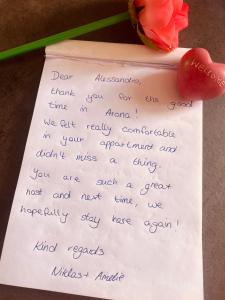 Welcome
Dear Alessandro,
thank you for the good
time in Arona!
We felt really comfortable
in your appartment and
didn't miss a thing.
You are such a great
host and next time, we
hopefully stay here again!
Kind regards
Niklas + Amelie